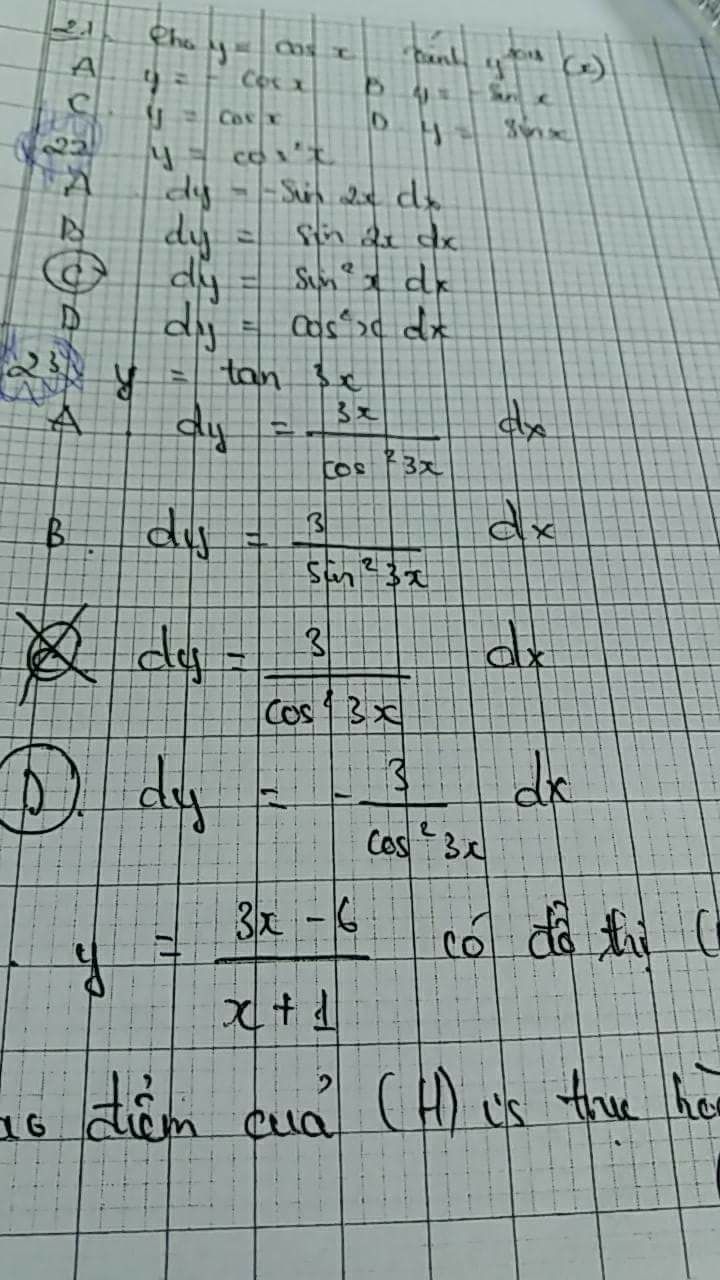 21. Cho y = cos x tính y (x)
A y = - cos x B y = - sin x
C. y = cos x D y = sin x
22 y = cos² x
A dy = -sin 2x dx
B dy = sin 2x dx
C dy = sin² x dx
D dy = cos² x dx
23 y = tan 3x
A dy = 3x / cos² 3x dx
B. dy = 3 / sin² 3x dx
C. dy = 3 / cos² 3x dx
D. dy = - 3 / cos² 3x dx
. y = 3x - 6 / x + 1 có đồ thị (
điểm của (H)